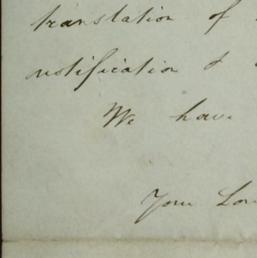 translation of
notification &
We have
Your Lor